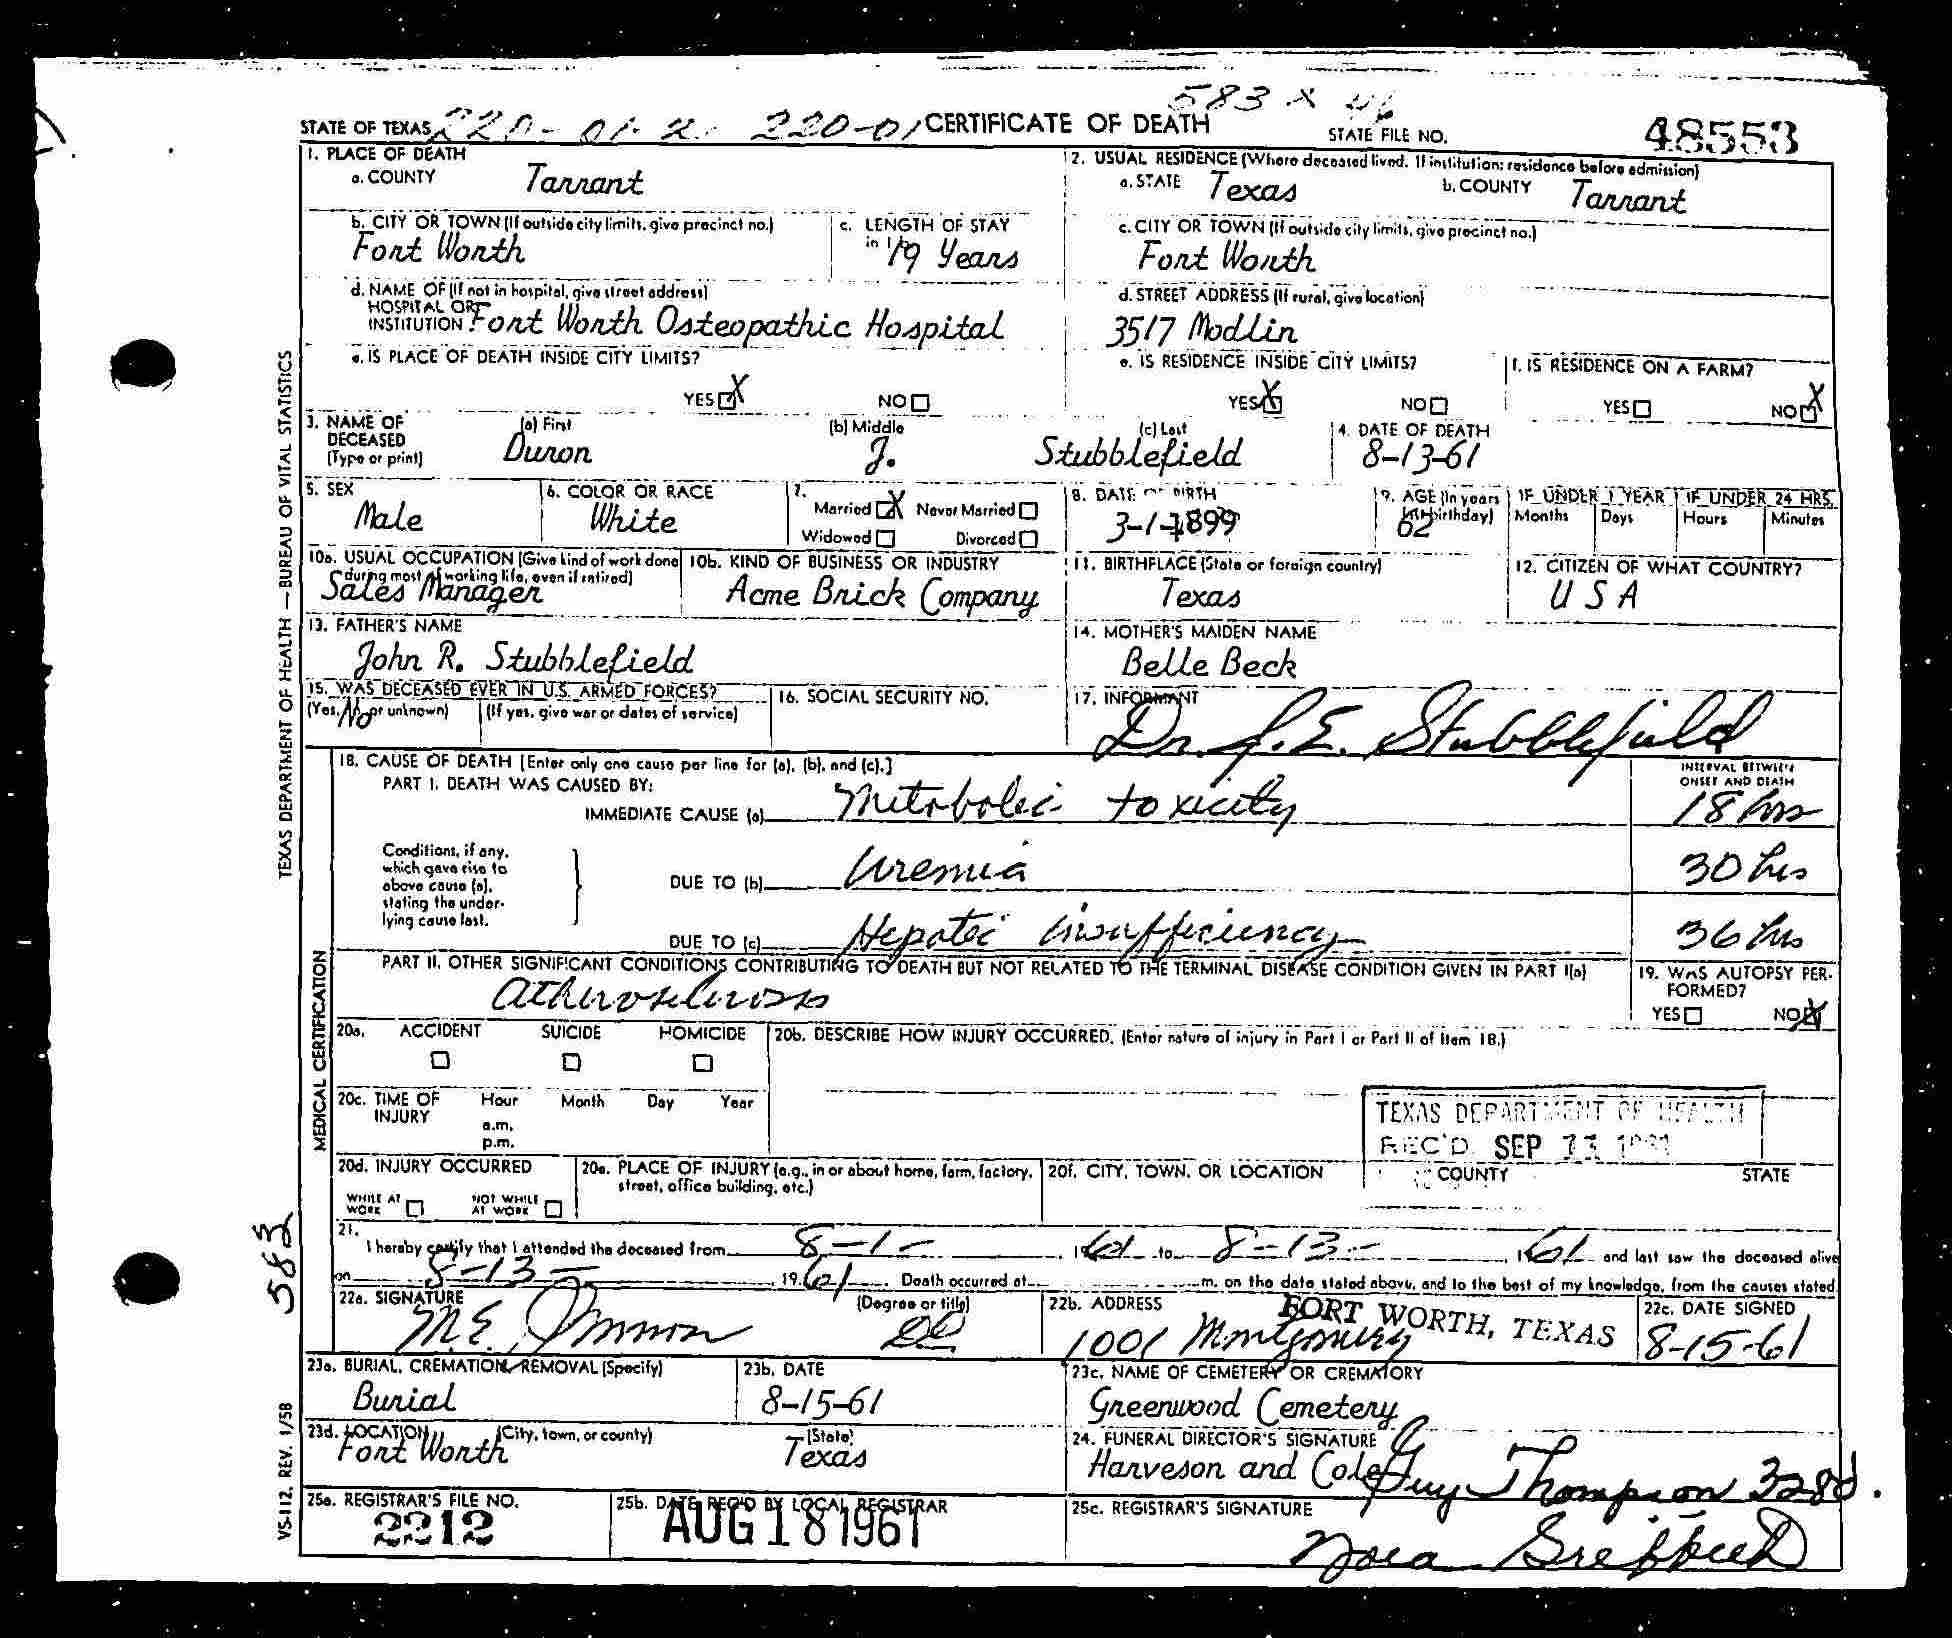 583 x 46
STATE OF TEXAS 220-01 CERTIFICATE OF DEATH STATE FILE NO. 48553
1. PLACE OF DEATH
a. COUNTY Tarrant
2. USUAL RESIDENCE (Where deceased lived. If institution: residence before admission)
a. STATE Texas b. COUNTY Tarrant
b. CITY OR TOWN (If outside city limits, give precinct no.)
Fort Worth
c. LENGTH OF STAY
in 1b 19 Years
c. CITY OR TOWN (If outside city limits, give precinct no.)
Fort Worth
d. NAME OF (If not in hospital, give street address)
HOSPITAL OR
INSTITUTION Fort Worth Osteopathic Hospital
d. STREET ADDRESS (If rural, give location)
3517 Modlin
e. IS PLACE OF DEATH INSIDE CITY LIMITS?
YES X NO
e. IS RESIDENCE INSIDE CITY LIMITS?
YES X NO
f. IS RESIDENCE ON A FARM?
YES NO X
3. NAME OF
DECEASED
(Type or print)
(a) First (b) Middle (c) Last
Duron J. Stubblefield
4. DATE OF DEATH
8-13-61
5. SEX
Male
6. COLOR OR RACE
White
7.
Married X Never Married
Widowed Divorced
8. DATE OF BIRTH
3-1-1899
9. AGE (In years
birthday)
62
IF UNDER 1 YEAR
Months Days
IF UNDER 24 HRS.
Hours Minutes
10a. USUAL OCCUPATION (Give kind of work done
during most of working life, even if retired)
Sales Manager
10b. KIND OF BUSINESS OR INDUSTRY
Acme Brick Company
11. BIRTHPLACE (State or foreign country)
Texas
12. CITIZEN OF WHAT COUNTRY?
U S A
13. FATHER'S NAME
John R. Stubblefield
14. MOTHER'S MAIDEN NAME
Belle Beck
15. WAS DECEASED EVER IN U.S. ARMED FORCES?
(Yes, no, or unknown) (If yes, give war or dates of service)
No
16. SOCIAL SECURITY NO.
17. INFORMANT
Dr. J. E. Stubblefield
18. CAUSE OF DEATH [Enter only one cause per line for (a), (b), and (c).]
PART I. DEATH WAS CAUSED BY:
INTERVAL BETWEEN
ONSET AND DEATH
IMMEDIATE CAUSE (a) Metabolic toxicity 18 hrs
Conditions, if any,
which gave rise to
above cause (a),
stating the under-
lying cause last.
DUE TO (b) Uremia 30 hrs
DUE TO (c) Hepatic insufficiency 36 hrs
PART II. OTHER SIGNIFICANT CONDITIONS CONTRIBUTING TO DEATH BUT NOT RELATED TO THE TERMINAL DISEASE CONDITION GIVEN IN PART I(a)
Atherosclerosis
19. WAS AUTOPSY PER-
FORMED?
YES NO X
20a. ACCIDENT SUICIDE HOMICIDE
20b. DESCRIBE HOW INJURY OCCURRED. (Enter nature of injury in Part I or Part II of Item 18.)
20c. TIME OF
INJURY
Hour Month Day Year
a.m.
p.m.
TEXAS DEPARTMENT OF HEALTH
REC'D SEP 1961
20d. INJURY OCCURRED
WHILE AT
WORK
NOT WHILE
AT WORK
20e. PLACE OF INJURY (e.g., in or about home, farm, factory,
street, office building, etc.)
20f. CITY, TOWN, OR LOCATION COUNTY STATE
21.
I hereby certify that I attended the deceased from 8-1-, 1961 to 8-13-, 1961 and last saw the deceased alive
on 8-13- 1961. Death occurred at m. on the date stated above, and to the best of my knowledge, from the causes stated.
22a. SIGNATURE (Degree or title)
M.E. DO
22b. ADDRESS FORT WORTH, TEXAS
1001 Montgomery
22c. DATE SIGNED
8-15-61
23a. BURIAL, CREMATION, REMOVAL (Specify)
Burial
23b. DATE
8-15-61
23c. NAME OF CEMETERY OR CREMATORY
Greenwood Cemetery
23d. LOCATION (City, town, or county) (State)
Fort Worth Texas
24. FUNERAL DIRECTOR'S SIGNATURE
Harveson and Cole Guy Thompson 3280.
25a. REGISTRAR'S FILE NO.
2212
25b. DATE REC'D BY LOCAL REGISTRAR
AUG 18 1961
25c. REGISTRAR'S SIGNATURE
Nora
TEXAS DEPARTMENT OF HEALTH — BUREAU OF VITAL STATISTICS
MEDICAL CERTIFICATION
583
VS-112, REV. 1/58